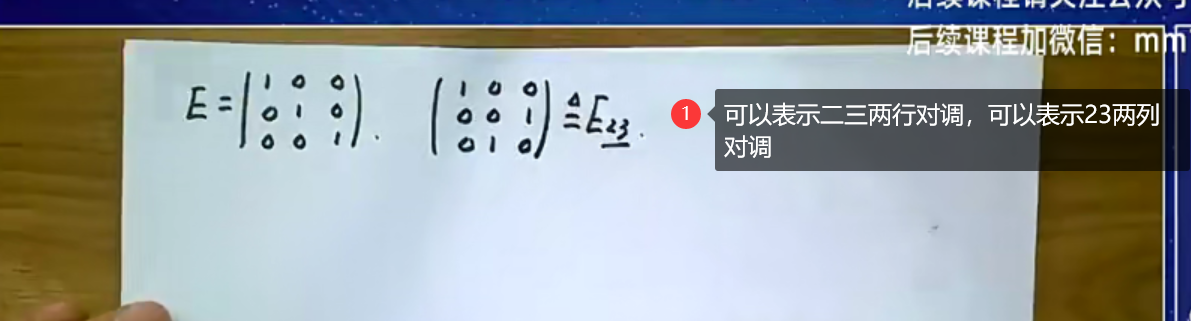 后续课程请关注公众号
后续课程加微信：mm
E = (1 0 0
0 1 0
0 0 1).
(1 0 0
0 0 1
0 1 0) ≜ E23.
1 可以表示二三两行对调，可以表示23两列
对调